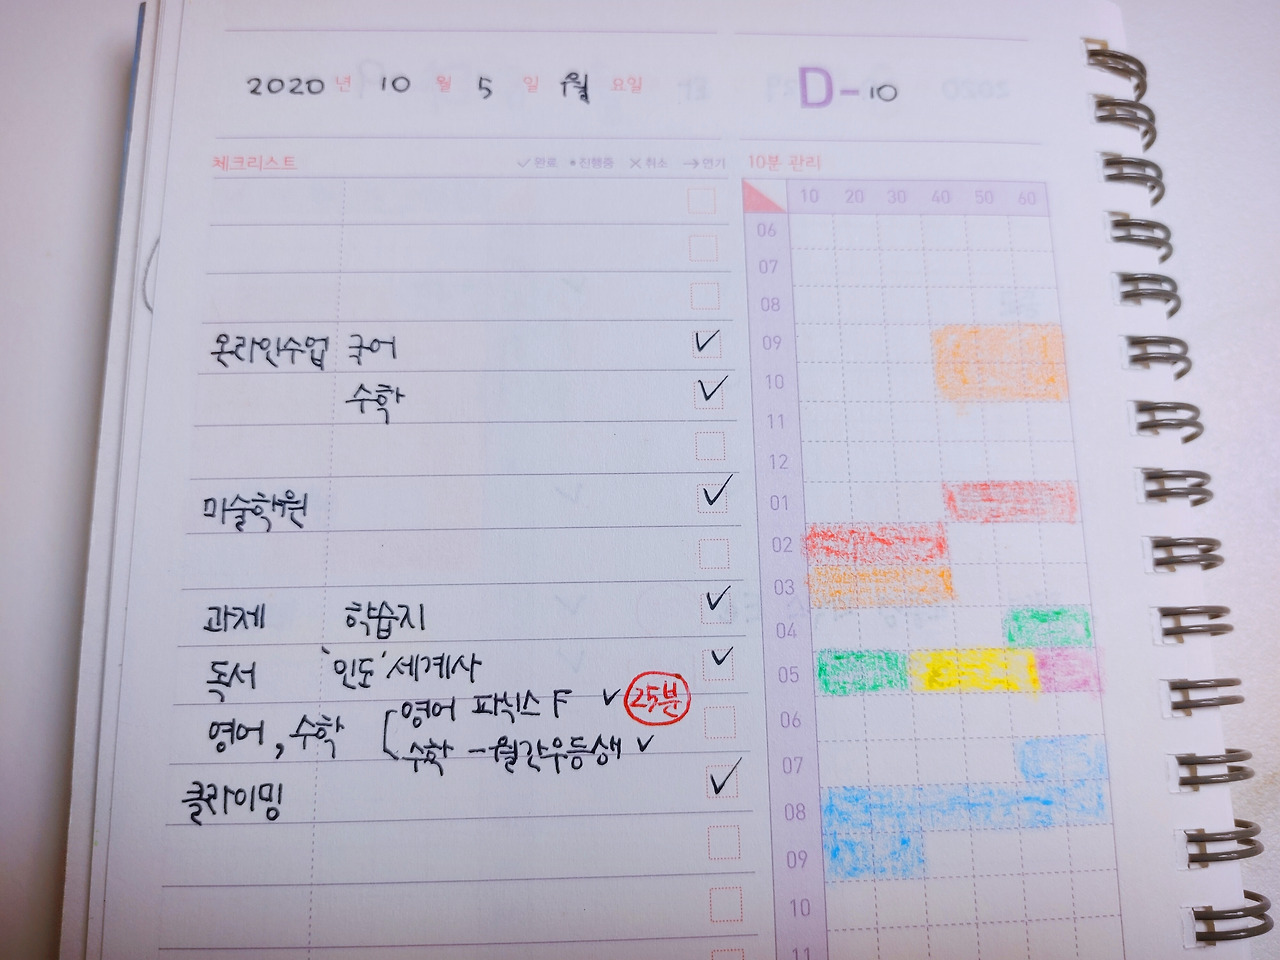 2020 년 10 월 5 일 월 요일 D-10
체크리스트 ✓완료 •진행중 ✕취소 →연기 10분 관리
10 20 30 40 50 60
06
07
08
온라인수업 국어 ✓ 09
수학 ✓ 10
11
12
미술학원 ✓ 01
02
03
과제 학습지 ✓ 04
독서 '인도' 세계사 ✓ 05
영어, 수학 영어 파닉스 F ✓ 25분 06
수학 -월간우등생 ✓ 07
클라이밍 ✓ 08
09
10
11